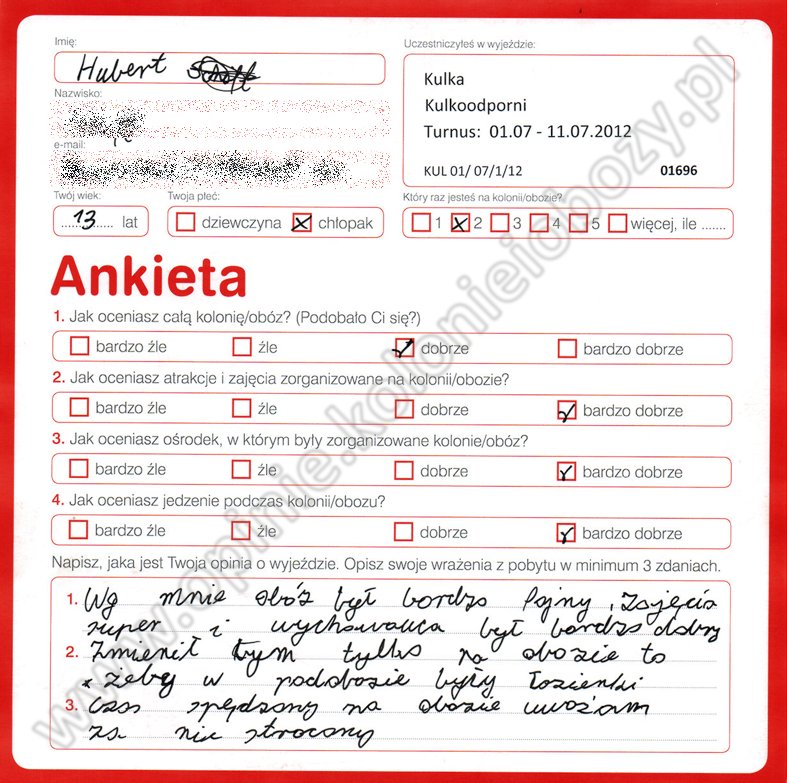 Imię:
Hubert
Uczestniczyłeś w wyjeździe:
Kulka
Kulkoodporni
Turnus: 01.07 - 11.07.2012
KUL 01/ 07/1/12 01696
Nazwisko:
e-mail:
Twój wiek:
13 lat
Twoja płeć:
dziewczyna chłopak
Który raz jesteś na kolonii/obozie?
1 2 3 4 5 więcej, ile .......
Ankieta
1. Jak oceniasz całą kolonię/obóz? (Podobało Ci się?)
bardzo źle źle dobrze bardzo dobrze
2. Jak oceniasz atrakcje i zajęcia zorganizowane na kolonii/obozie?
bardzo źle źle dobrze bardzo dobrze
3. Jak oceniasz ośrodek, w którym były zorganizowane kolonie/obóz?
bardzo źle źle dobrze bardzo dobrze
4. Jak oceniasz jedzenie podczas kolonii/obozu?
bardzo źle źle dobrze bardzo dobrze
Napisz, jaka jest Twoja opinia o wyjeździe. Opisz swoje wrażenia z pobytu w minimum 3 zdaniach.
1. Wg mnie obóz był bardzo fajny, zajęcia
super i wychowawca był bardzo dobry
2. Zmienił bym tylko na obozie to
żeby w podobozie były łazienki
3. Czas spędzony na obozie uważam
za nie stracony
www.opinie.kolonieiobozy.pl